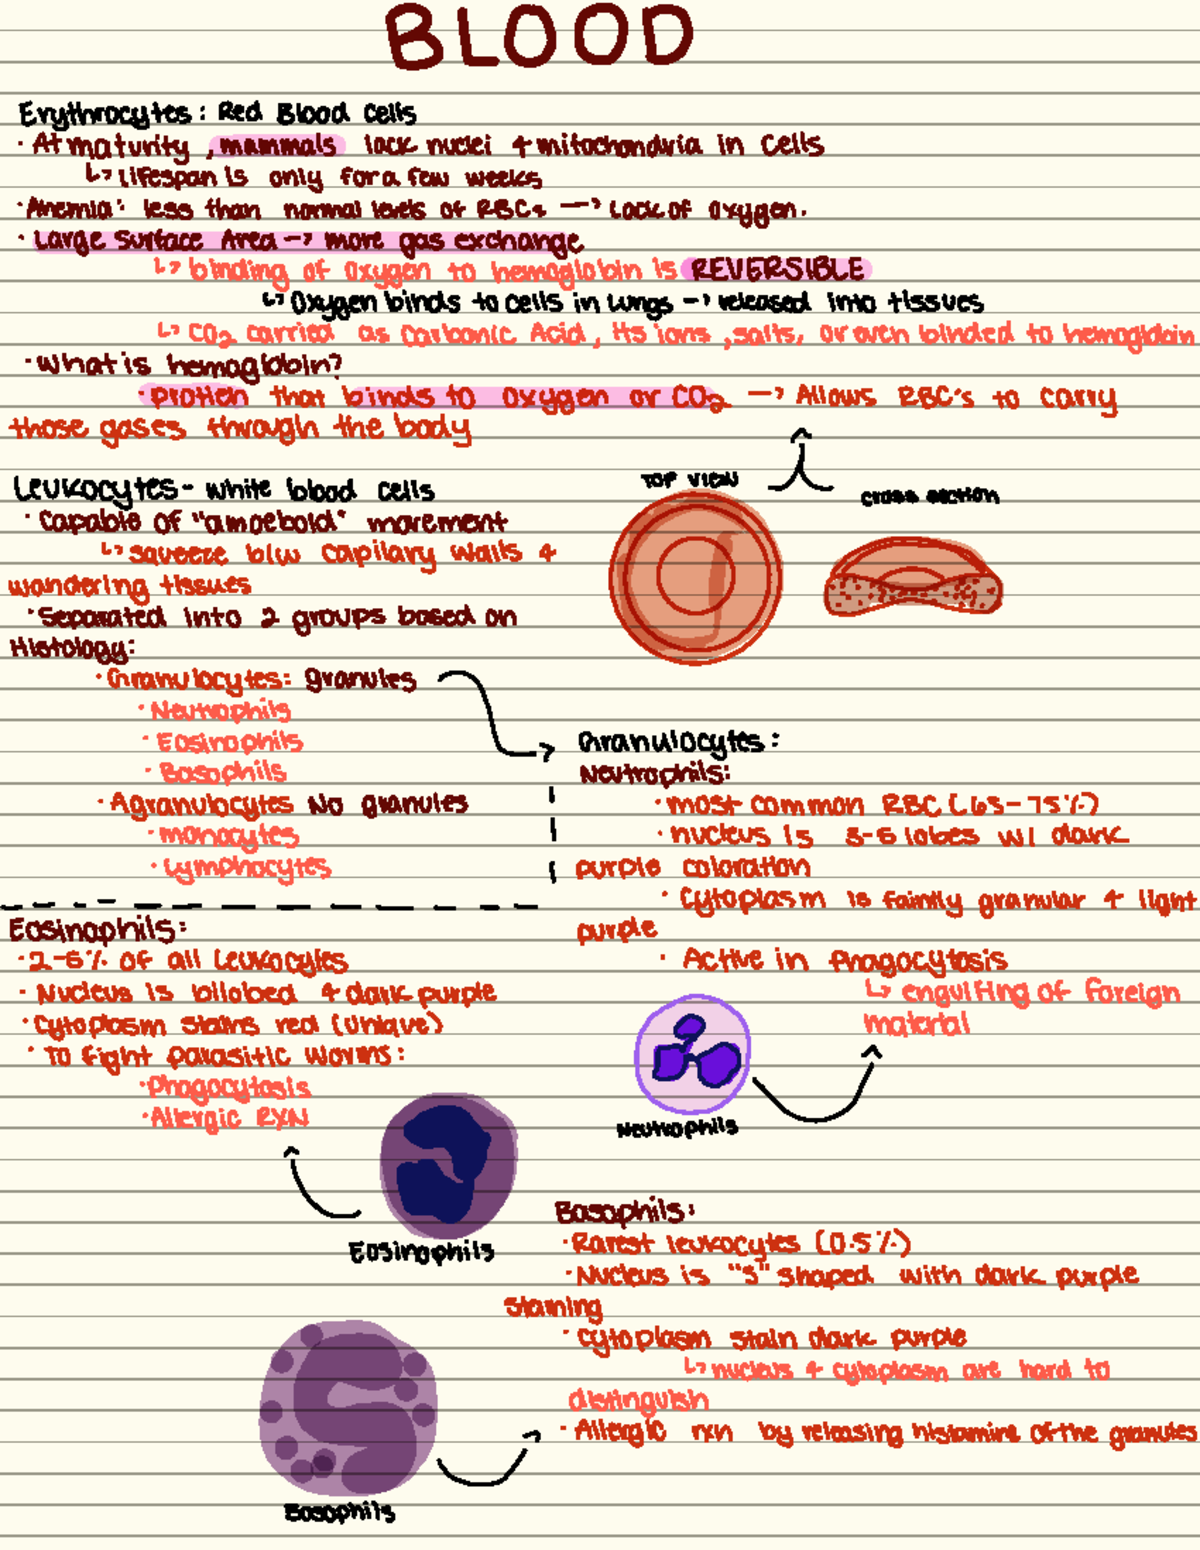 BLOOD
Erythrocytes: Red Blood Cells
· At maturity, mammals lack nuclei & mitochondria in cells
↳ lifespan is only for a few weeks
· Anemia: less than normal levels of RBCs → Lack of oxygen.
· Large Surface Area → more gas exchange
↳ binding of oxygen to hemoglobin is REVERSIBLE
↳ Oxygen binds to cells in lungs → released into tissues
↳ CO2 carried as Carbonic Acid, its ions, salts, or even binded to hemoglobin
· What is hemoglobin?
· protien that binds to oxygen or CO2 → Allows RBC's to carry
those gases through the body
Leukocytes - white blood cells
· Capable of "amoeboid" movement
↳ squeeze b/w capilary walls &
wandering tissues
· Separated into 2 groups based on
Histology:
· Granulocytes: granules
· Neutrophils
· Eosinophils
· Basophils
· Agranulocytes No granules
· monocytes
· Lymphocytes
TOP VIEW
cross section
Granulocytes:
Neutrophils:
· most common RBC (65-75%)
· nucleus is 3-5 lobes w/ dark
purple coloration
· Cytoplasm is faintly granular & light
purple
· Active in Phagocytosis
↳ engulfing of foreign
material
Neutrophils
Eosinophils:
· 2-5% of all Leukocytes
· Nucleus is bilobed & dark purple
· Cytoplasm stains red (unique)
· To fight parasitic worms:
· Phagocytosis
· Allergic RXN
Eosinophils
Basophils:
· Rarest leukocytes (0.5%)
· Nucleus is "S" shaped with dark purple
staining
· Cytoplasm stain dark purple
↳ nucleus & cytoplasm are hard to
distinguish
· Allergic rxn by releasing histamine of the granules
Basophils